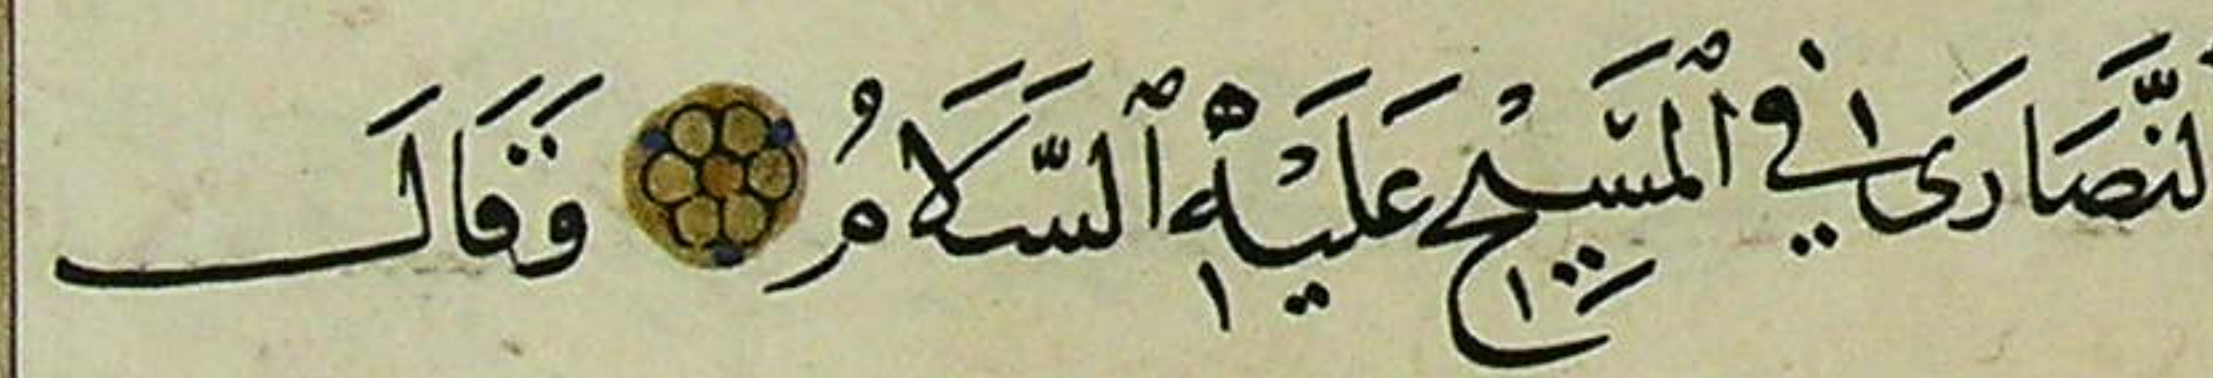 لنَّصَارَىٰ فِي ٱلْمَسِيْحِ عَلَيْهِ ٱلسَّلَامُ وَقَالَ